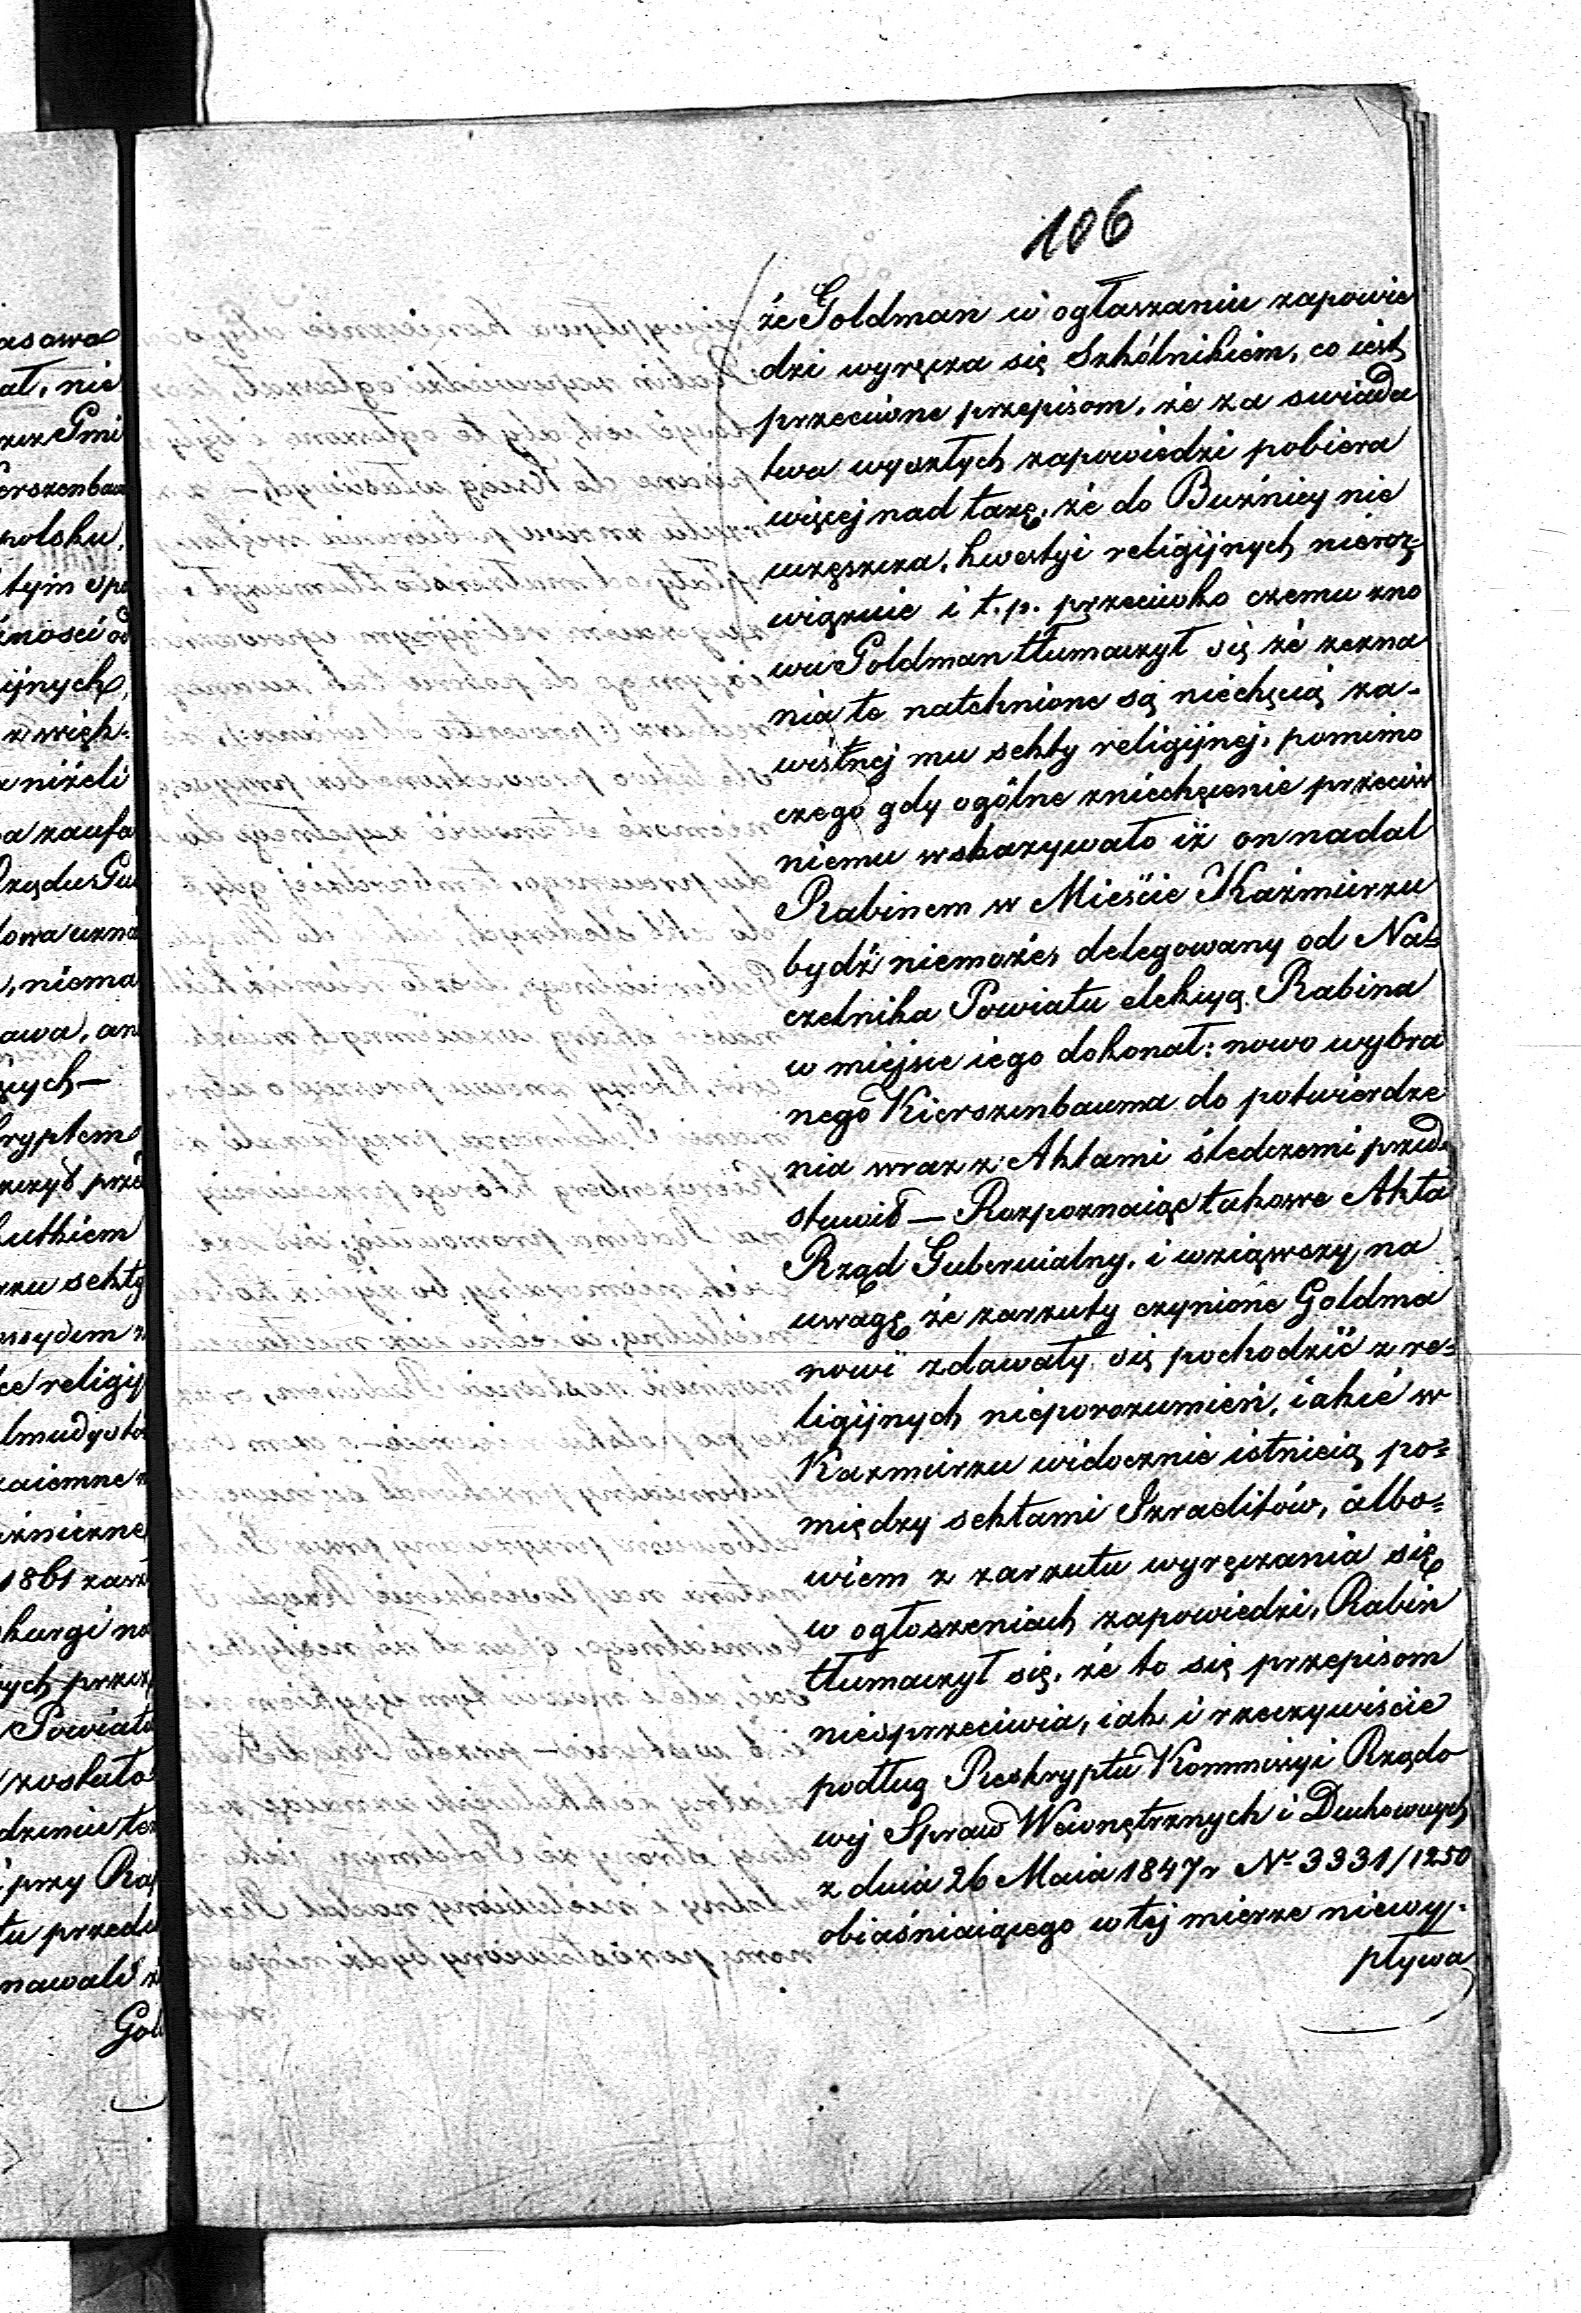 106
że Goldman w ogłaszaniu zapowie
dzi wyręcza się Szkólnikiem, co iest
przeciwne przepisom, że za swiada
twa wyszłych zapowiedzi pobiera
więcej nad taxę, że do Bużnicy nie
uczęszcza, kwestyi religijnych nieroz
wiązuie i t. p. przeciwko czemu zno
wu Goldman tłumaczył się że zezna
nia te natchnione są niechęcią za-
wistnej mu sekty religijnej, pomimo
czego gdy ogólne zniechęcenie przeciw
niemu wskazywało iż on nadal
Rabinem w Mieście Kaźmierzu
bydź niemoże, delegowany od Na=
czelnika Powiatu elekcyą Rabina
w miejsce iego dokonał: nowo wybra
nego Kierszenbauma do potwierdze
nia wraz z Aktami śledczemi przed
stawił — Rozpoznaiąc takowe Akta
Rząd Gubernialny, i wziąwszy na
uwagę że zarzuty czynione Goldma
nowi zdawały się pochodzić z re=
ligijnych nieporozumień, iakie w
Kazmierzu widocznie istnieią po=
między sektami Izraelitów, albo=
wiem z zarzutu wyręczania się
w ogłoszeniach zapowiedzi, Rabin
tłumaczył się, że to się przepisom
niesprzeciwia, iak i rzeczywiście
podług Reskryptu Kommissyi Rządo
wej Spraw Wewnętrznych i Duchownych
z dnia 26 Maia 1847 r № 3331/1250
obiaśniaiącego w tej mierze niewy-
pływa
asowa
ał, nie
polsku,
ijnych,
z więk-
niżeli
a zaufa
niema
kutkiem
ce religij
1861
Powiatu
zostało
przy Ra
nawali
Gol